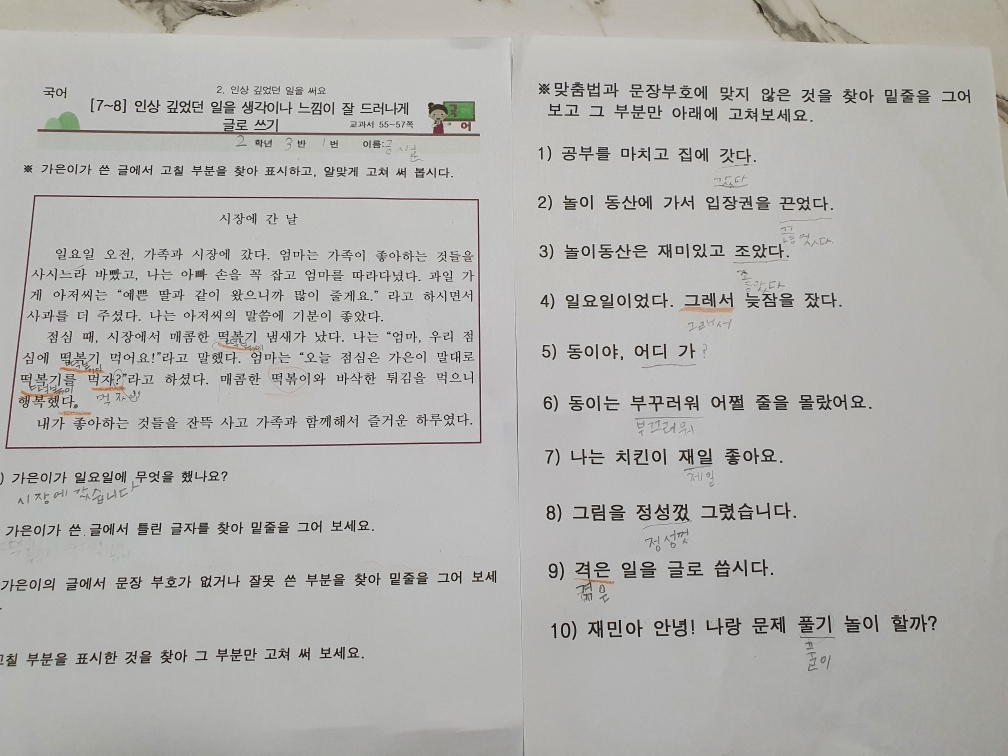 국어
2. 인상 깊었던 일을 써요
[7~8] 인상 깊었던 일을 생각이나 느낌이 잘 드러나게
글로 쓰기
교과서 55~57쪽
국
어
2 학년 3 반 1 번 이름:
※ 가은이가 쓴 글에서 고칠 부분을 찾아 표시하고, 알맞게 고쳐 써 봅시다.
시장에 간 날
일요일 오전, 가족과 시장에 갔다. 엄마는 가족이 좋아하는 것들을
사시느라 바빴고, 나는 아빠 손을 꼭 잡고 엄마를 따라다녔다. 과일 가
게 아저씨는 “예쁜 딸과 같이 왔으니까 많이 줄게요.” 라고 하시면서
사과를 더 주셨다. 나는 아저씨의 말씀에 기분이 좋았다.
점심 때, 시장에서 매콤한 떡복기 냄새가 났다. 나는 “엄마, 우리 점
심에 떡복기 먹어요!”라고 말했다. 엄마는 “오늘 점심은 가은이 말대로
떡복기를 먹자?”라고 하셨다. 매콤한 떡볶이와 바삭한 튀김을 먹으니
행복했다.
먹자
내가 좋아하는 것들을 잔뜩 사고 가족과 함께해서 즐거운 하루였다.
) 가은이가 일요일에 무엇을 했나요?
시장에 갔습니다
가은이가 쓴 글에서 틀린 글자를 찾아 밑줄을 그어 보세요.
가은이의 글에서 문장 부호가 없거나 잘못 쓴 부분을 찾아 밑줄을 그어 보세
고칠 부분을 표시한 것을 찾아 그 부분만 고쳐 써 보세요.
※맞춤법과 문장부호에 맞지 않은 것을 찾아 밑줄을 그어
보고 그 부분만 아래에 고쳐보세요.
1) 공부를 마치고 집에 갓다.
갔다
2) 놀이 동산에 가서 입장권을 끈었다.
3) 놀이동산은 재미있고 조았다.
4) 일요일이었다. 그레서 늦잠을 잤다.
그래서
5) 동이야, 어디 가?
6) 동이는 부꾸러워 어쩔 줄을 몰랐어요.
부끄러워
7) 나는 치킨이 재일 좋아요.
제일
8) 그림을 정성껐 그렸습니다.
정성껏
9) 격은 일을 글로 씁시다.
겪은
10) 재민아 안녕! 나랑 문제 풀기 놀이 할까?